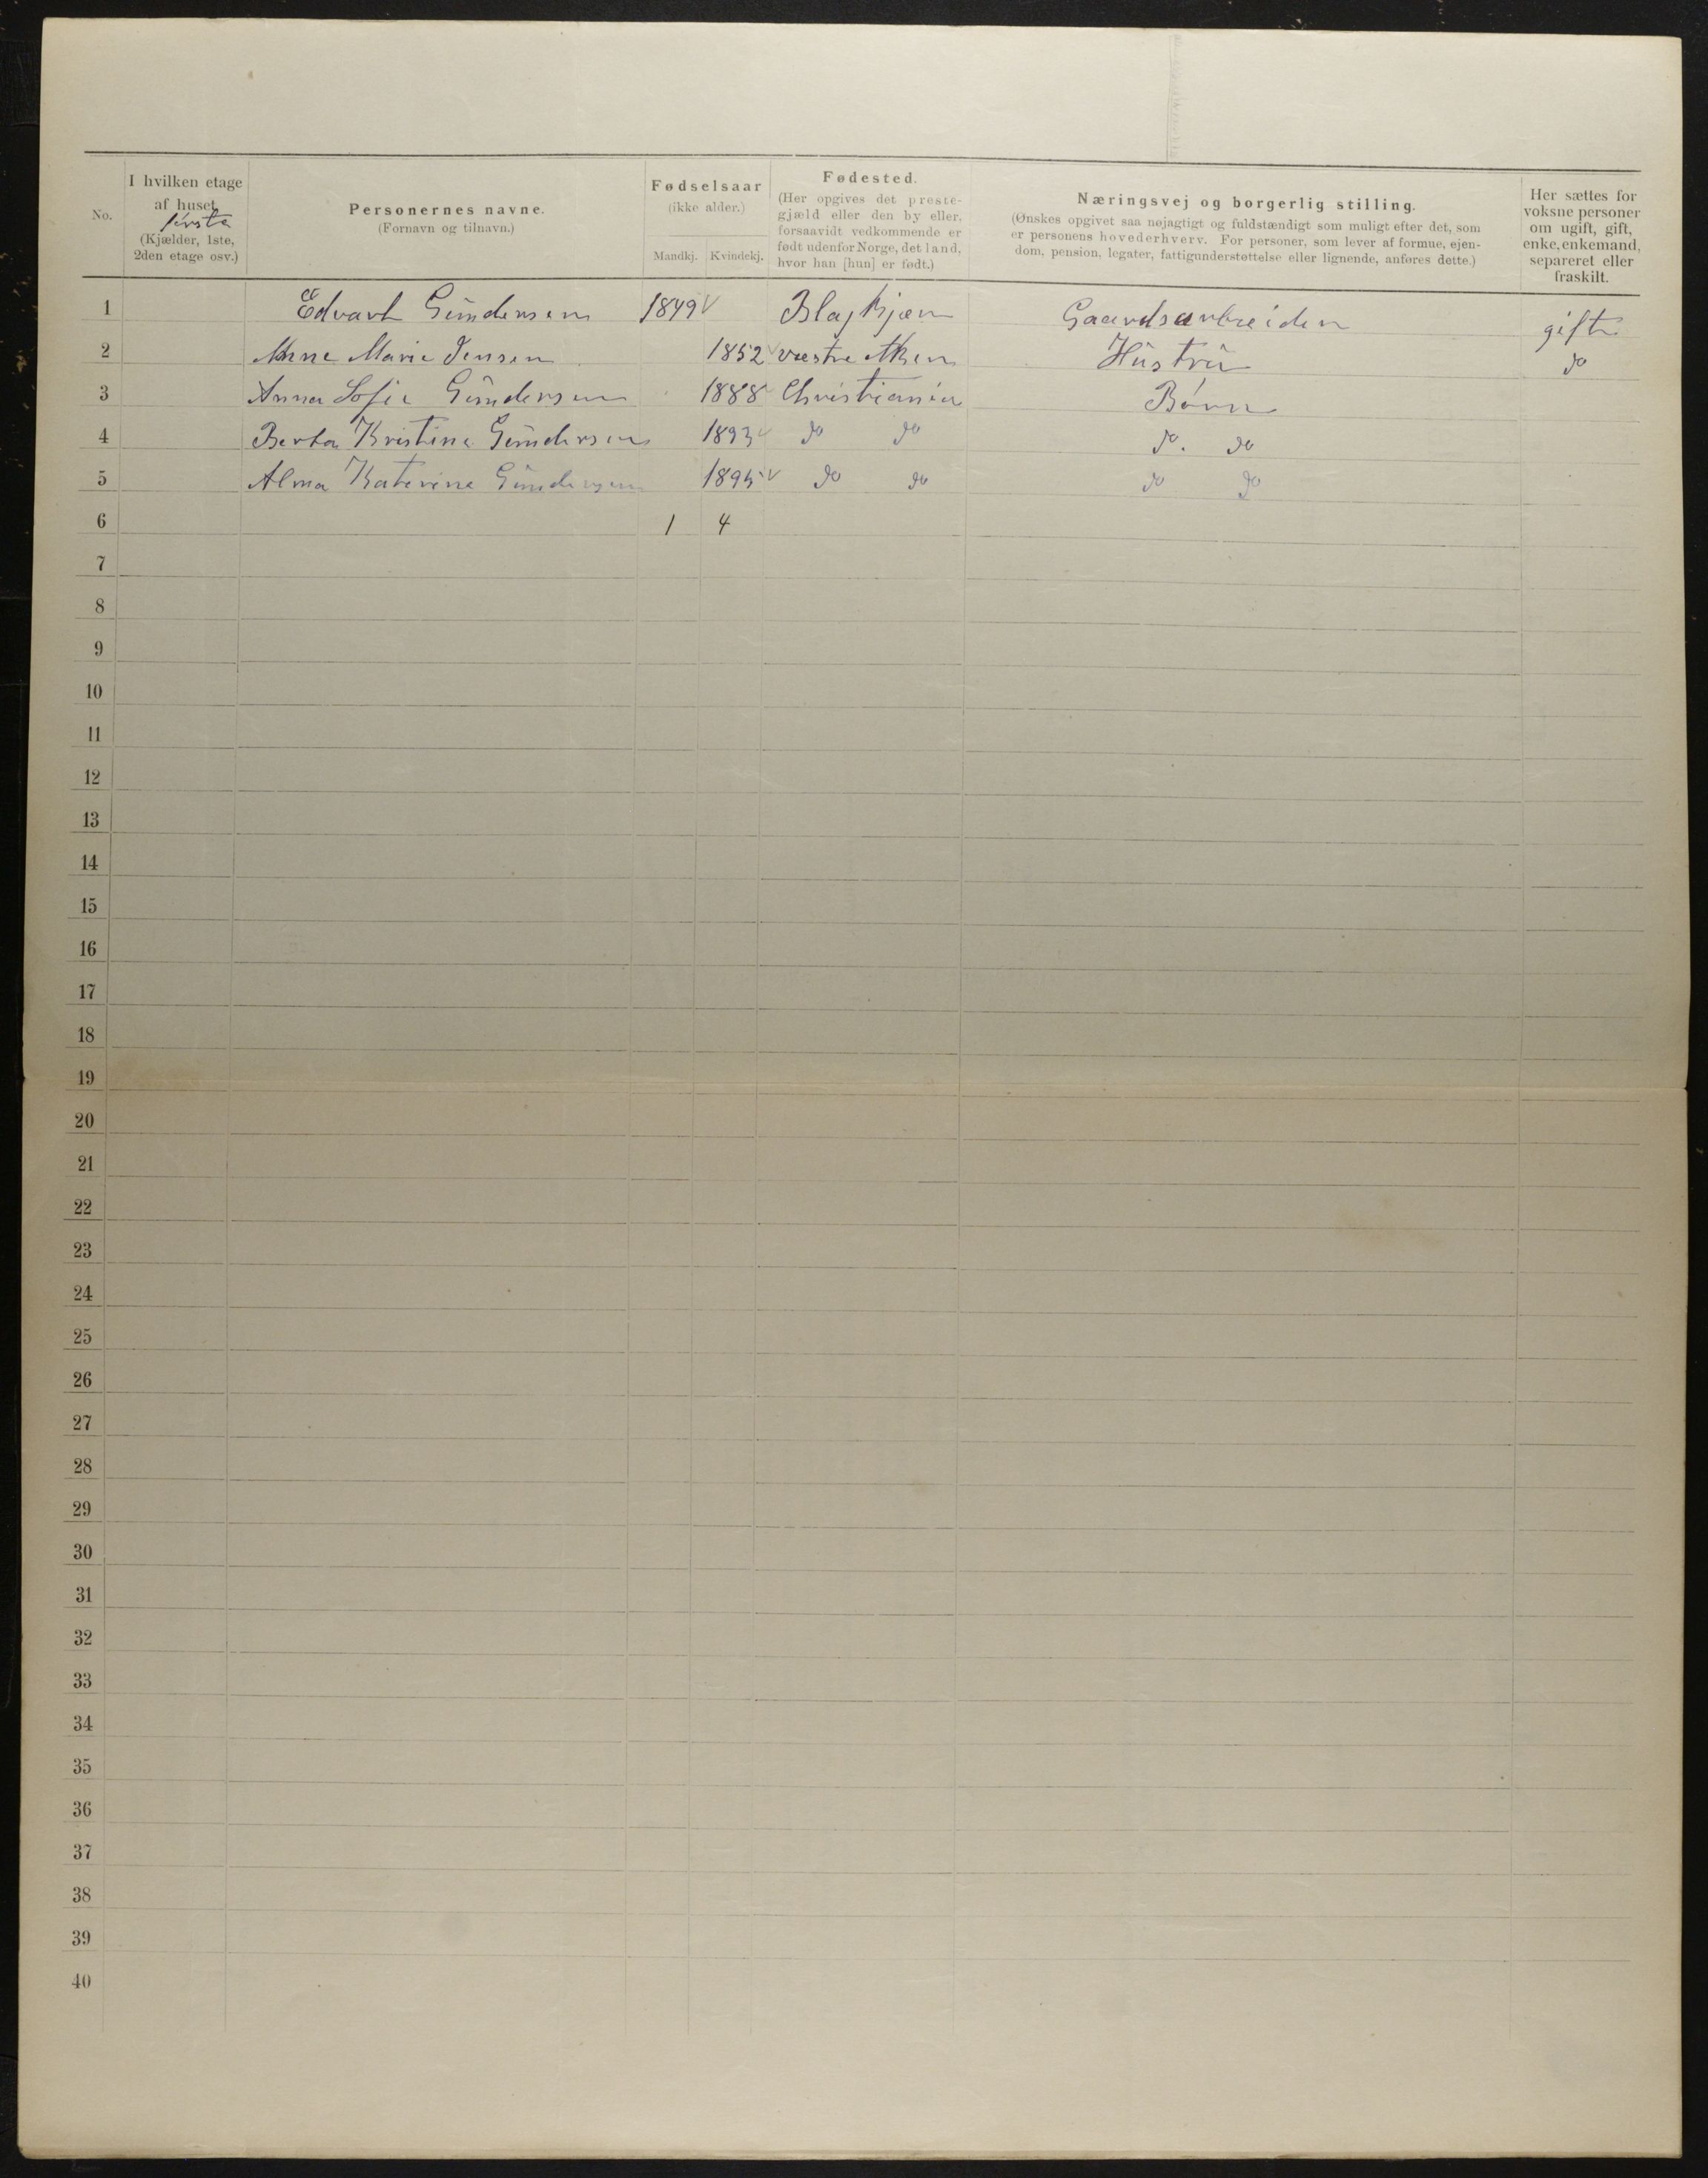 No.
I hvilken etage
af huset
første
(Kjælder, 1ste,
2den etage osv.)
Personernes navne.
(Fornavn og tilnavn.)
Fødselsaar
(ikke alder.)
Mandkj. Kvindekj.
Fødested.
(Her opgives det preste-
gjæld eller den by eller,
forsaavidt vedkommende er
født udenfor Norge, det land,
hvor han [hun] er født.)
Næringsvej og borgerlig stilling.
(Ønskes opgivet saa nøjagtigt og fuldstændigt som muligt efter det, som
er personens hovederhverv. For personer, som lever af formue, ejen-
dom, pension, legater, fattigunderstøttelse eller lignende, anføres dette.)
Her sættes for
voksne personer
om ugift, gift,
enke, enkemand,
separeret eller
fraskilt.
1 Edvart Gundersen 1849 Gaardsarbeider gift
2 Anne Marie Jensen 1852 vestre Aken Hustru do
3 Anna Sofie Gundersen 1888 Christiania Børn
4 Berta Kristine Gundersen 1893 do do do. do
5 Alma Katerine Gundersen 1895 do do do do
6 1 4
7
8
9
10
11
12
13
14
15
16
17
18
19
20
21
22
23
24
25
26
27
28
29
30
31
32
33
34
35
36
37
38
39
40